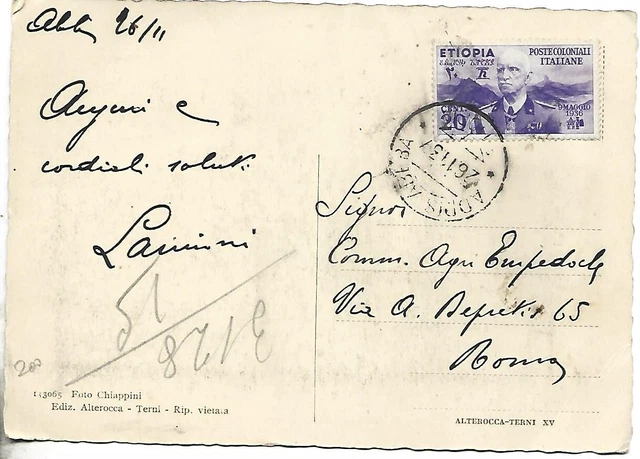 26/11
ETIOPIA
POSTE COLONIALI
ITALIANE
9 MAGGIO
1936
CENT.
20
ADDIS ABEBA
26.11.37
Auguri e
cordiali saluti
Signor
Comm. Agr. Empedocle
Via A. Depretis 65
Roma
15
3128
200
143065 Foto Chiappini
Ediz. Alterocca - Terni - Rip. vietata
ALTEROCCA-TERNI XV